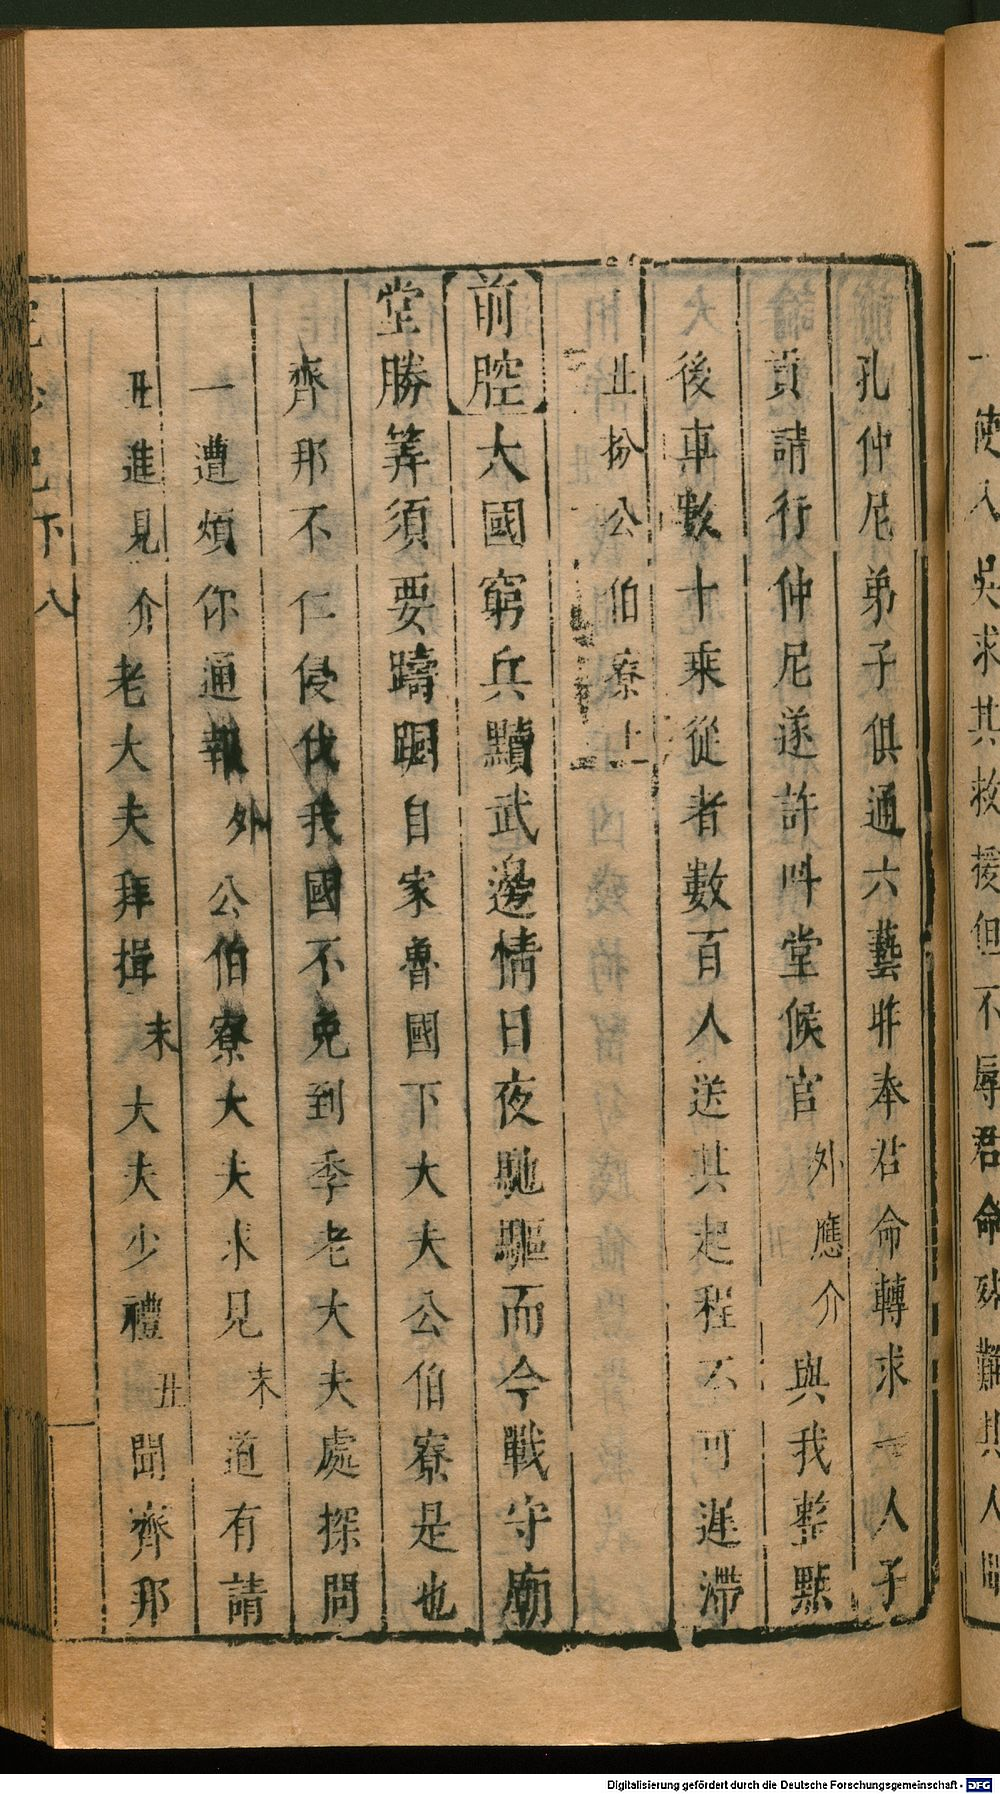 使入吳求其救援但不辱君命殊難其人
孔仲尼弟子俱通六藝非奉君命轉求一人子
貢請行仲尼遂許叫堂候官外應介與我整點
後車數十乘從者數百人送其起程不可遲滯
丑扮公伯寮上
前腔大國窮兵黷武邊情日夜馳驅而今戰守廟
堂勝筭須要躊躇自家魯國下大夫公伯寮是也
齊那不仁侵伐我國不免到季老大夫處探問
一遭煩你通報外公伯寮大夫求見末道有請
丑進見介老大夫拜揖末大夫少禮丑聞齊那
下八
Digitalisierung gefördert durch die Deutsche Forschungsgemeinschaft - DFG